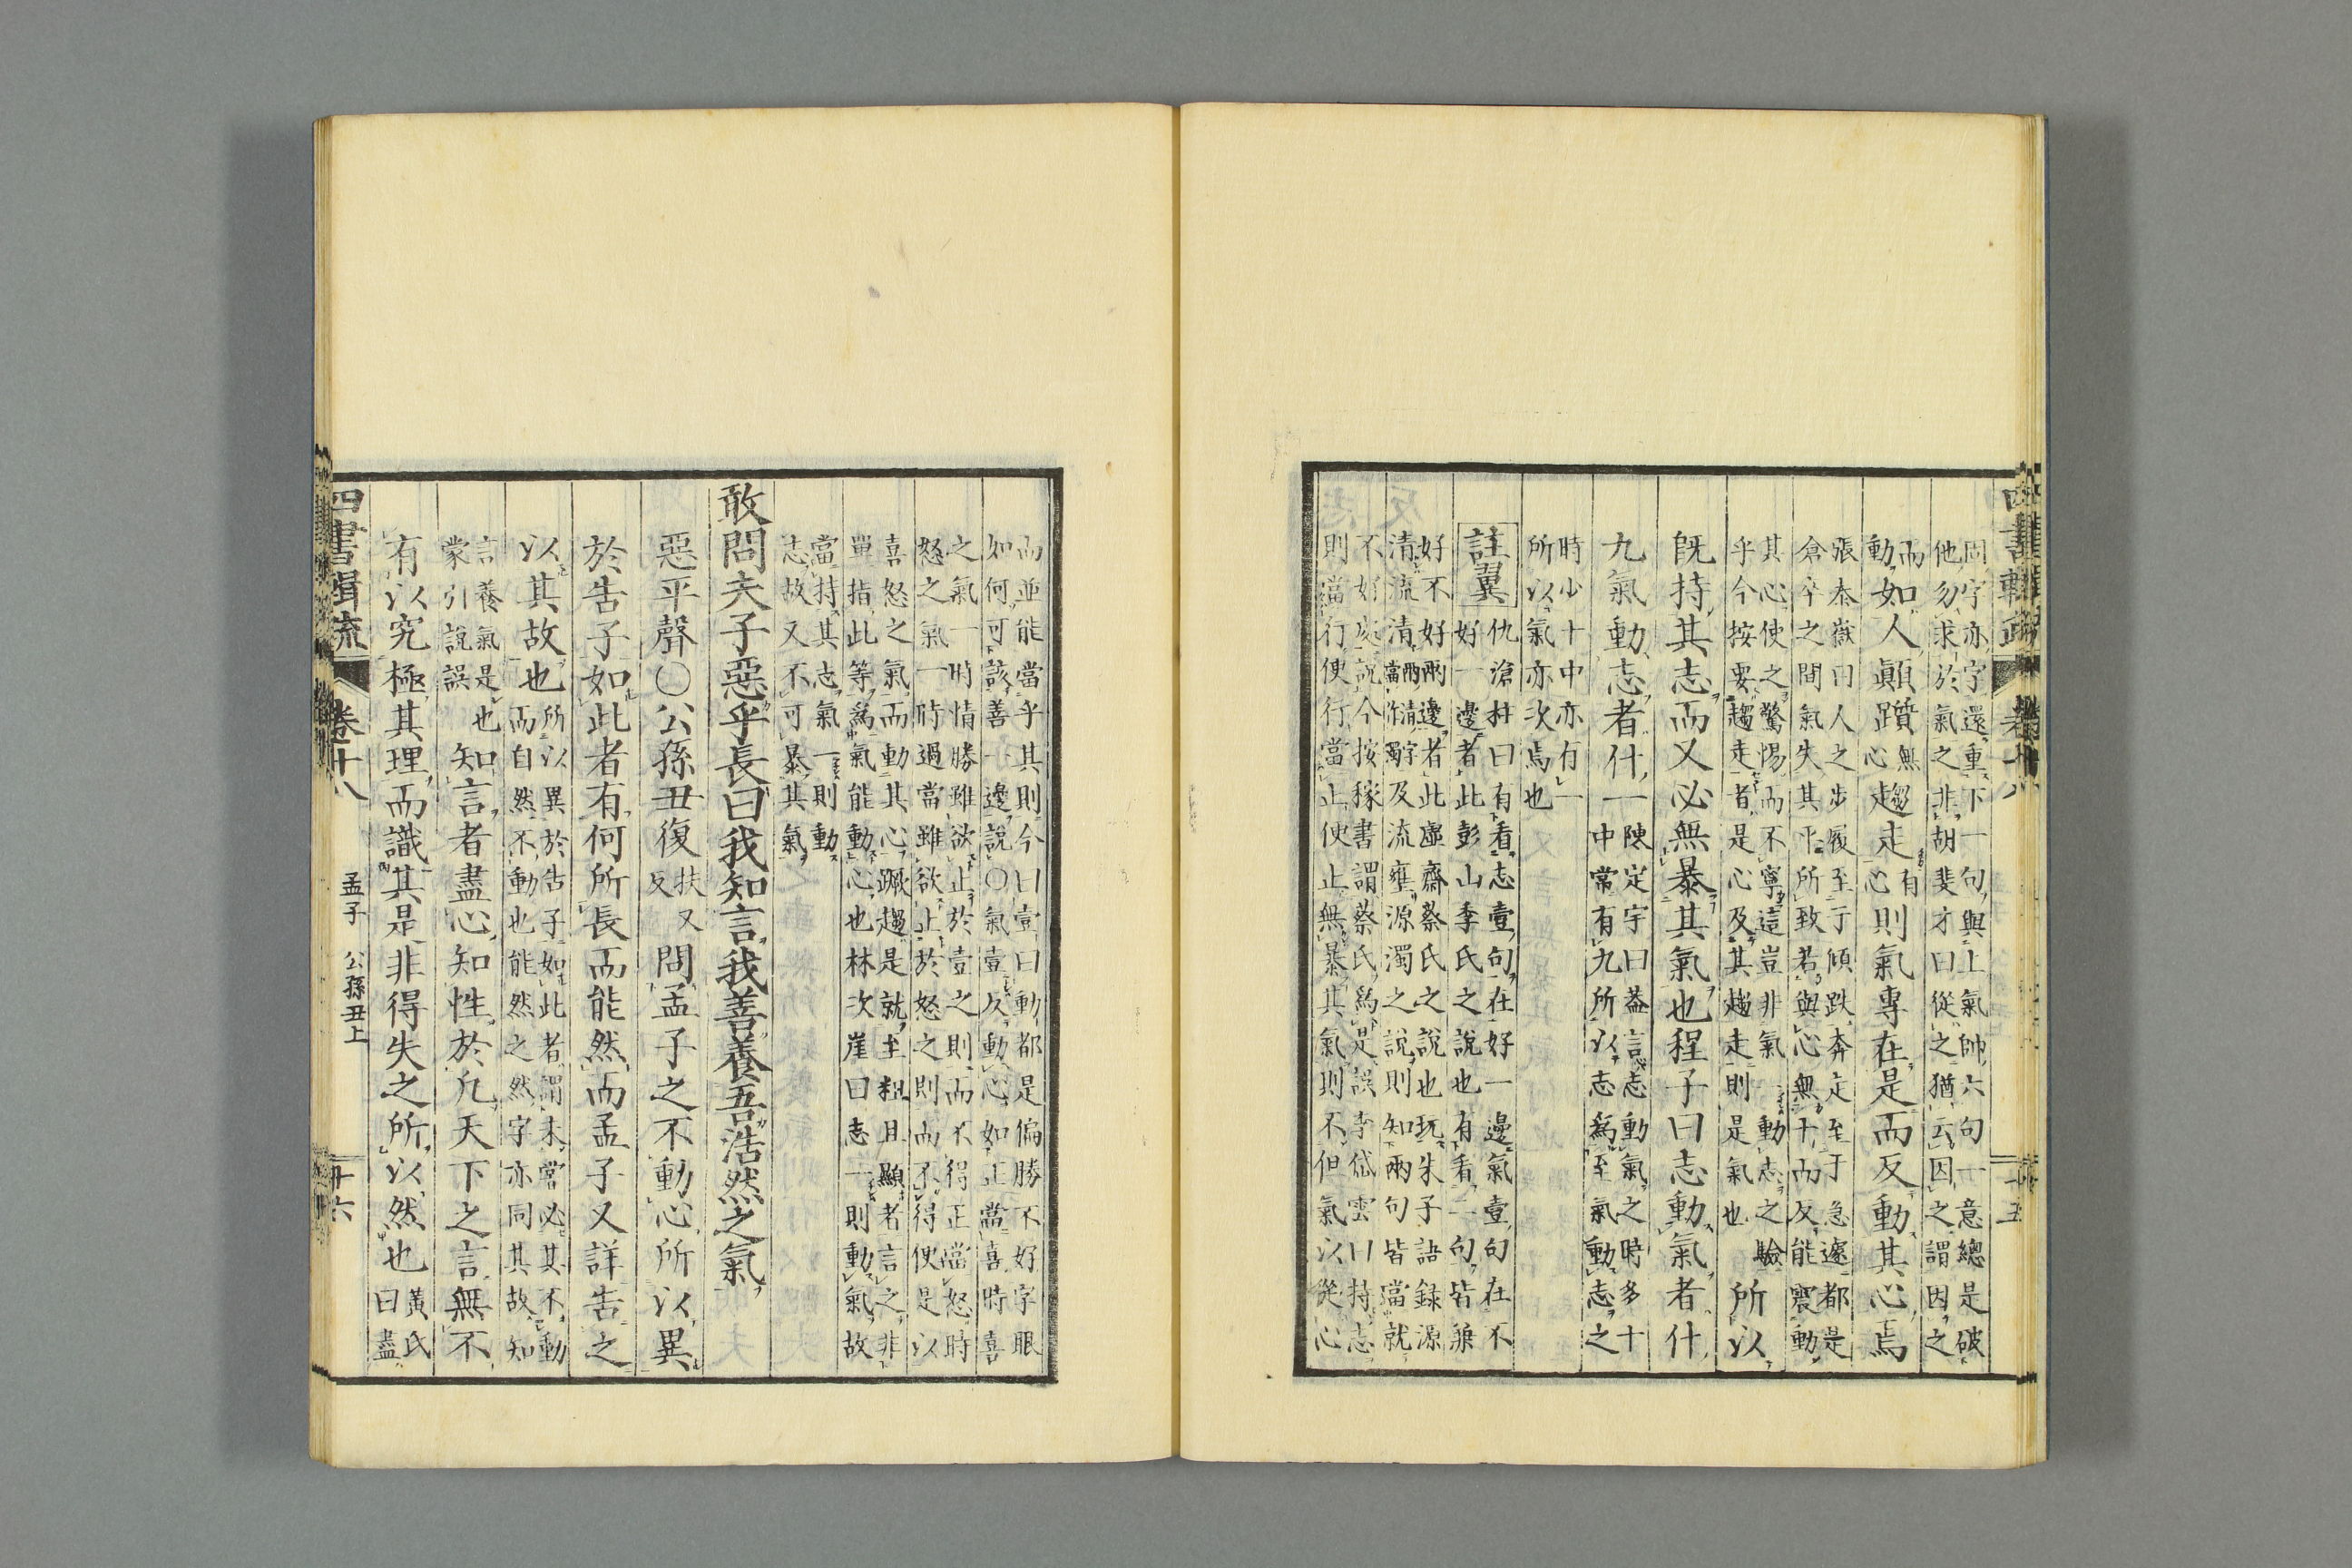 固字亦字還重下一句與上氣帥六句一意總是破
他勿求於氣之非胡斐才曰從之猶云因之謂因之
而動如人顛躓無心趨走有心則氣專在是而反動其心焉
張泰嶽曰人之步履至于傾跌奔走至于急遽都是
倉卒之間氣失其平所致若與心無干而反能震動
其心使之驚惕而不寧這豈非氣動志之驗
乎今按要趨走者是心及其趨走則是氣也
所以
既持其志而又必無暴其氣也程子曰志動氣者什
九氣動志者什一
陳定宇曰葢言志動氣之時多十
中常有九所以志為至氣動志之
時少十中亦有一
所以氣亦次焉也
註翼
仇滄柱曰有看志壹句在好一邊氣壹句在不
好一邊者此彭山季氏之說也有看二句皆兼
好不好兩邊者此虛齋蔡氏之說也玩朱子語錄源
清流清兩清字當作濁及流壅源濁之說則知兩句皆當就
不好處說今按稼書謂蔡氏為是誤李岱雲曰持志
則當行便行當止便止無暴其氣則不但氣以從心
四書輯疏
卷十八
十五
而並能當乎其則今曰壹曰動都是偏勝不好字眼
如何可該善一邊說○氣壹反動心如正當喜時喜
之氣一時情勝雖欲止於壹之則而不得正當怒時
怒之氣一時過當雖欲止於怒之則而不得便是以
喜怒之氣而動其心蹶趨是就至粗且顯者言之非
單指此等為氣能動心也林次崖曰志一則動氣故
當持其志氣一則動
志故又不可暴其氣
敢問夫子惡乎長曰我知言我善養吾浩然之氣
惡平聲○公孫丑復扶又反問孟子之不動心所以異
於告子如此者有何所長而能然而孟子又詳告之
以其故也
所以異於告子如此者謂未嘗必其不動
而自然不動也能然之然字亦同其故知
言養氣是也
蒙引說誤
知言者盡心知性於凡天下之言無不
有以究極其理而識其是非得失之所以然也
黃氏
曰盡
四書輯疏
卷十八
孟子
公孫丑上
十六